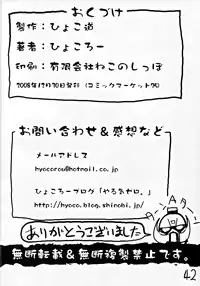 おくづけ
製作：ひよこ道
著者：ひよころー
印刷：有限会社ねこのしっぽ
2008年12月30日発行（コミックマーケット75）
お問い合わせ＆感想など
メールアドレス
hyocorou@hotmail.co.jp
ひよころーブログ「やる気ゼロ。」
http://hyoco.blog.shinobi.jp/
ありがとうございました
無断転載＆無断複製禁止です。
42